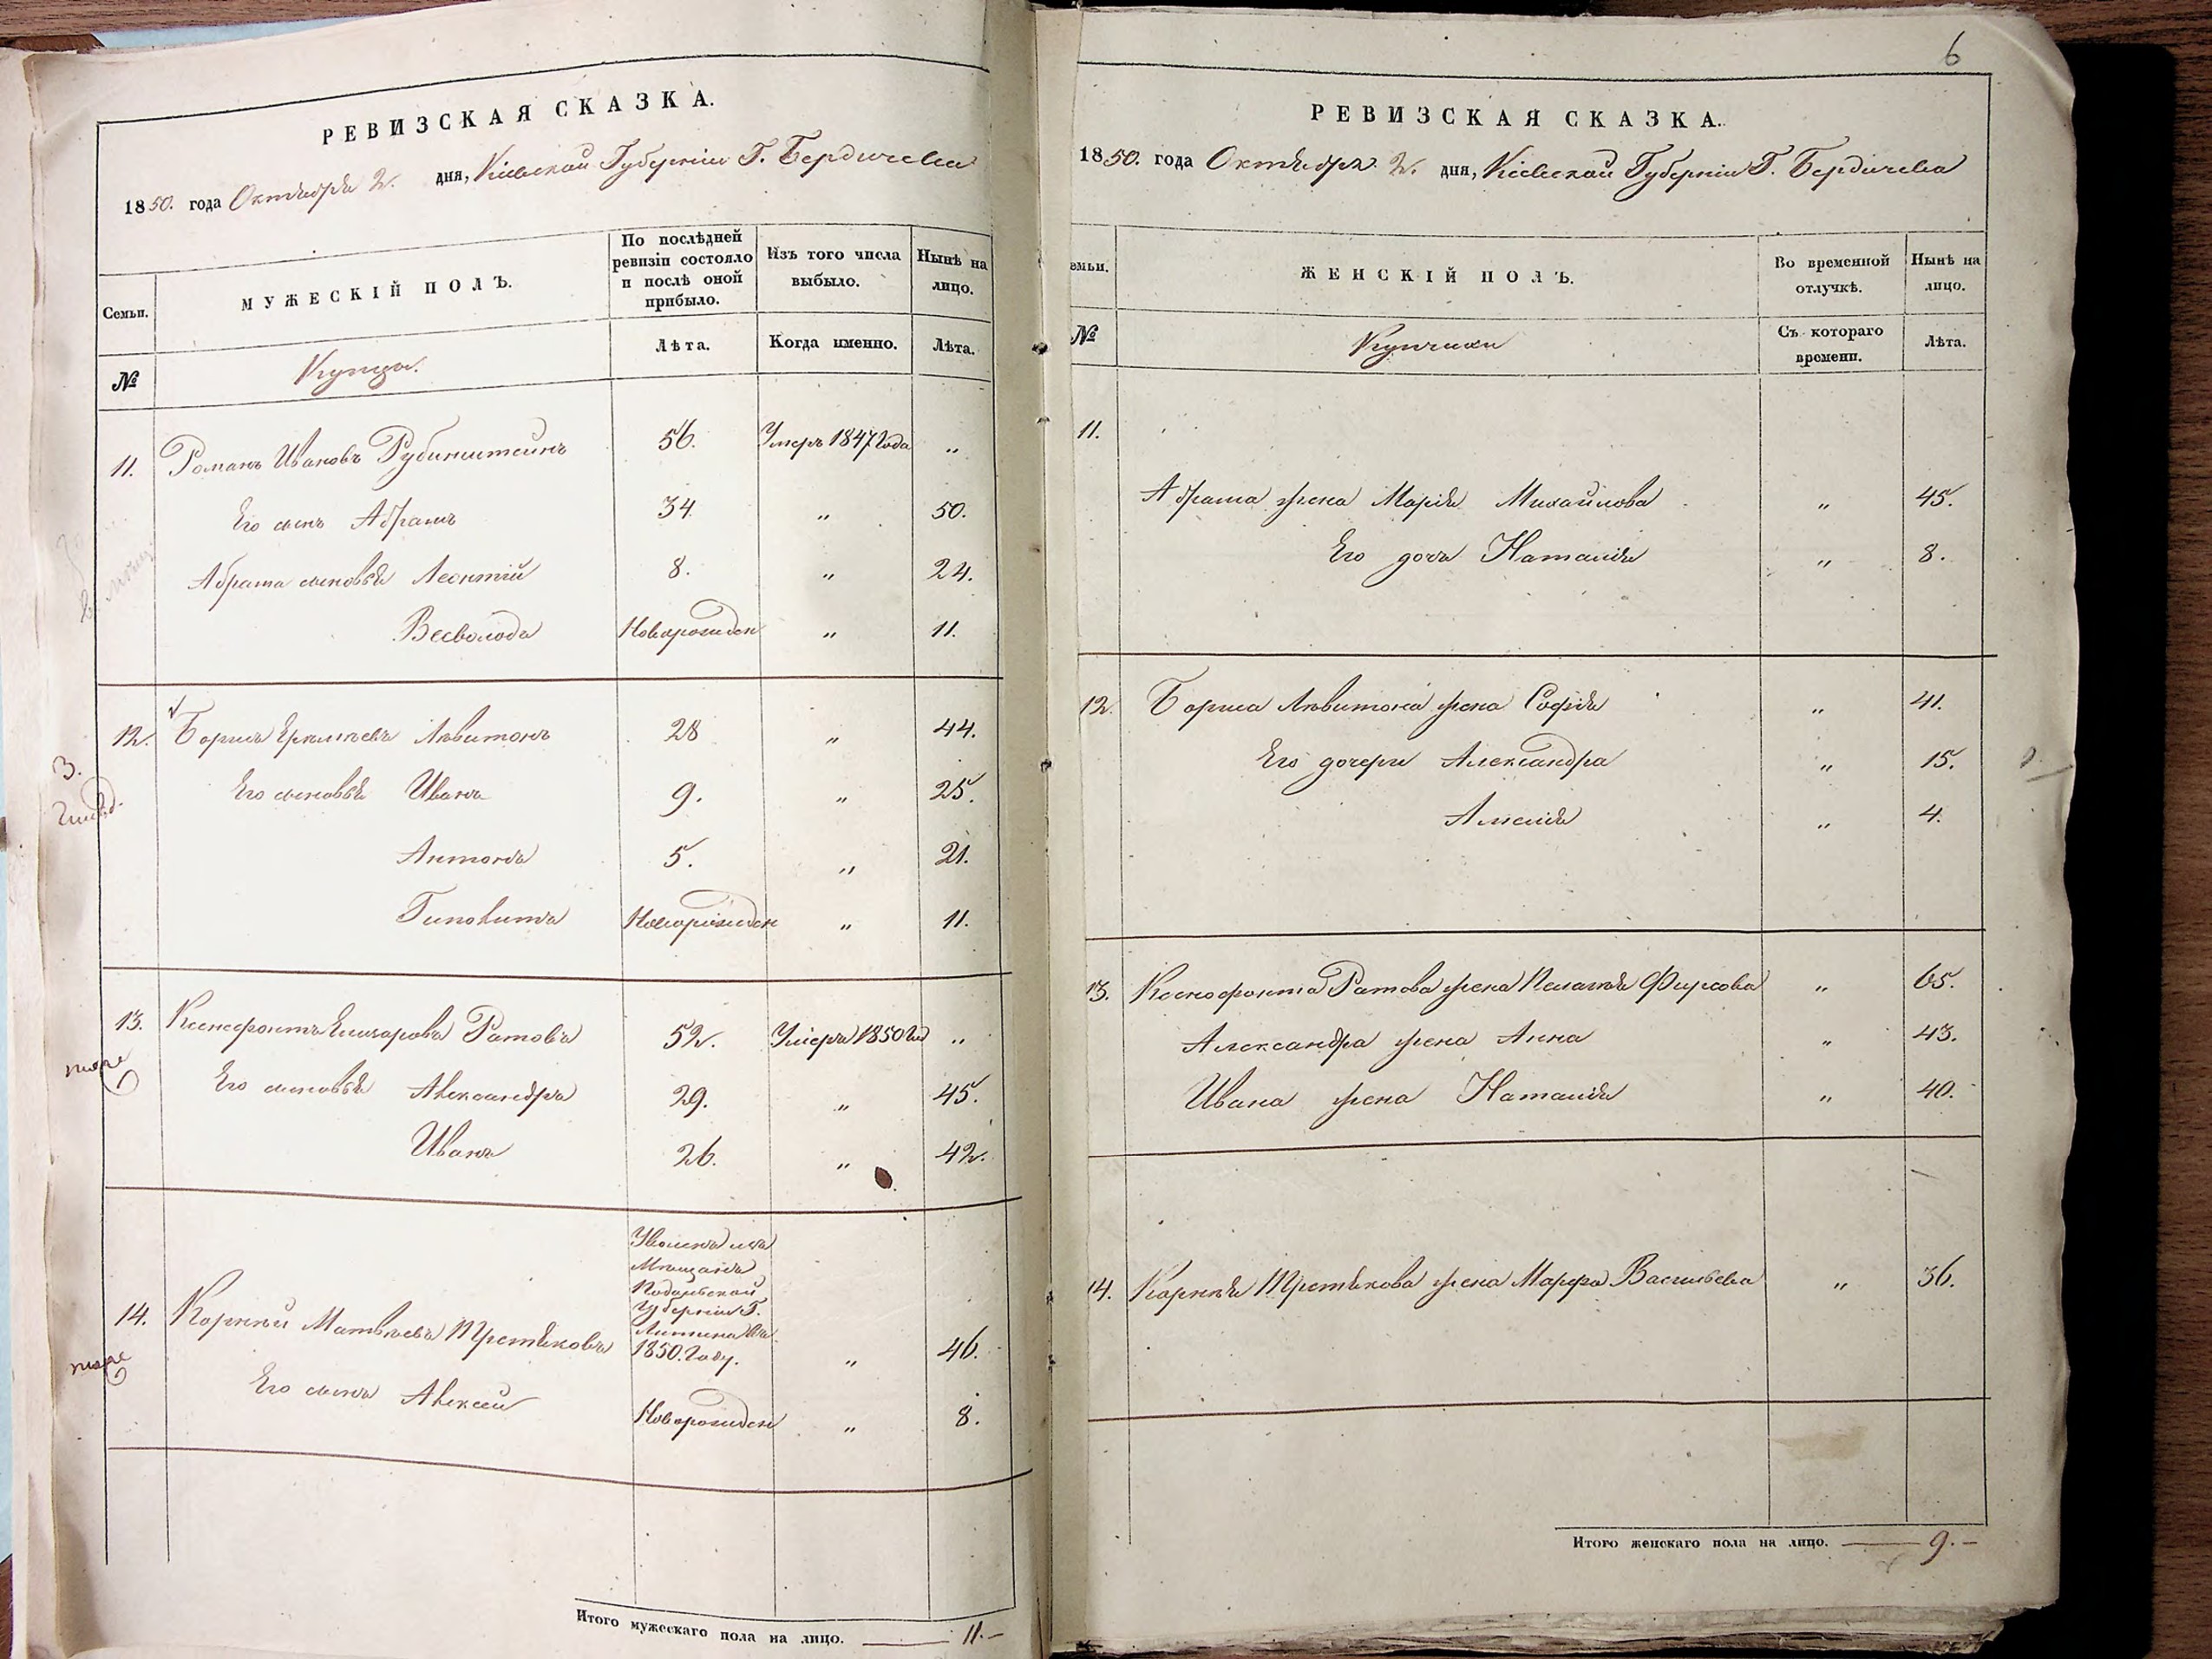 РЕВИЗСКАЯ СКАЗКА.
1850. года Октября 2. дня, Кіевской Губерніи Г. Бердичева
Семьи.
МУЖЕСКІЙ ПОЛЪ.
По послѣдней ревизіи состояло и послѣ оной прибыло.
Изъ того числа выбыло.
Нынѣ на лицо.
№
Купцы.
Лѣта.
Когда именно.
Лѣта.
11. Романъ Ивановъ Рубинштейнъ 56. Умеръ 1847 Года „
Его сынъ Абрамъ 34 „ 50.
Абрама сыновья Леонтій 8. „ 24.
Всеволодъ Новорожден „ 11.
12. Борисъ Левитонъ 28 „ 44.
3.
Гильд.
Его сыновья Иванъ 9. „ 25.
Антонъ 5. „ 21.
Новорожден „ 11.
13. Ксенофонтъ Елизаровъ Ратовъ 52. Умеръ 1850 Год „
тоже
Его сыновья Александръ 29. „ 45.
Иванъ 26. „ 42.
Уволенъ изъ
Мѣщанъ
Подольской
Губерніи Г.
Литина въ
1850. Году.
14. Корнѣй Матвѣевъ Третьяковъ „ 46.
тоже
Его сынъ Алексѣй Новорожден „ 8.
Итого мужескаго пола на лицо. 11.-
6
РЕВИЗСКАЯ СКАЗКА.
1850. года Октября 2. дня, Кіевской Губерніи Г. Бердичева
емьи.
ЖЕНСКІЙ ПОЛЪ.
Во временной отлучкѣ.
Нынѣ на лицо.
№
Купчихи
Съ котораго времени.
Лѣта.
11.
Абрама жена Марія Михайлова „ 45.
Его дочь Наталія „ 8.
12. Бориса Левитона жена Софія „ 41.
Его дочери Александра „ 15.
Амелія „ 4.
13. Ксенофонта Ратова жена Пелагія Фирсова „ 65.
Александра жена Анна „ 43.
Ивана жена Наталія „ 40.
14. Корнѣя Третьякова жена Марфа Васильева „ 36.
Итого женскаго пола на лицо. 9.-